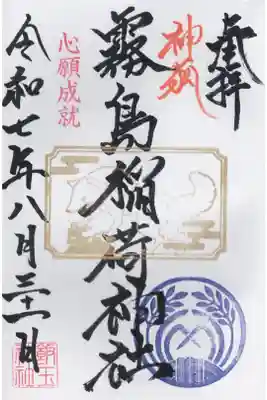 奉拝
神狐
霧島稲荷神社
心願成就
令和七年八月三十一日